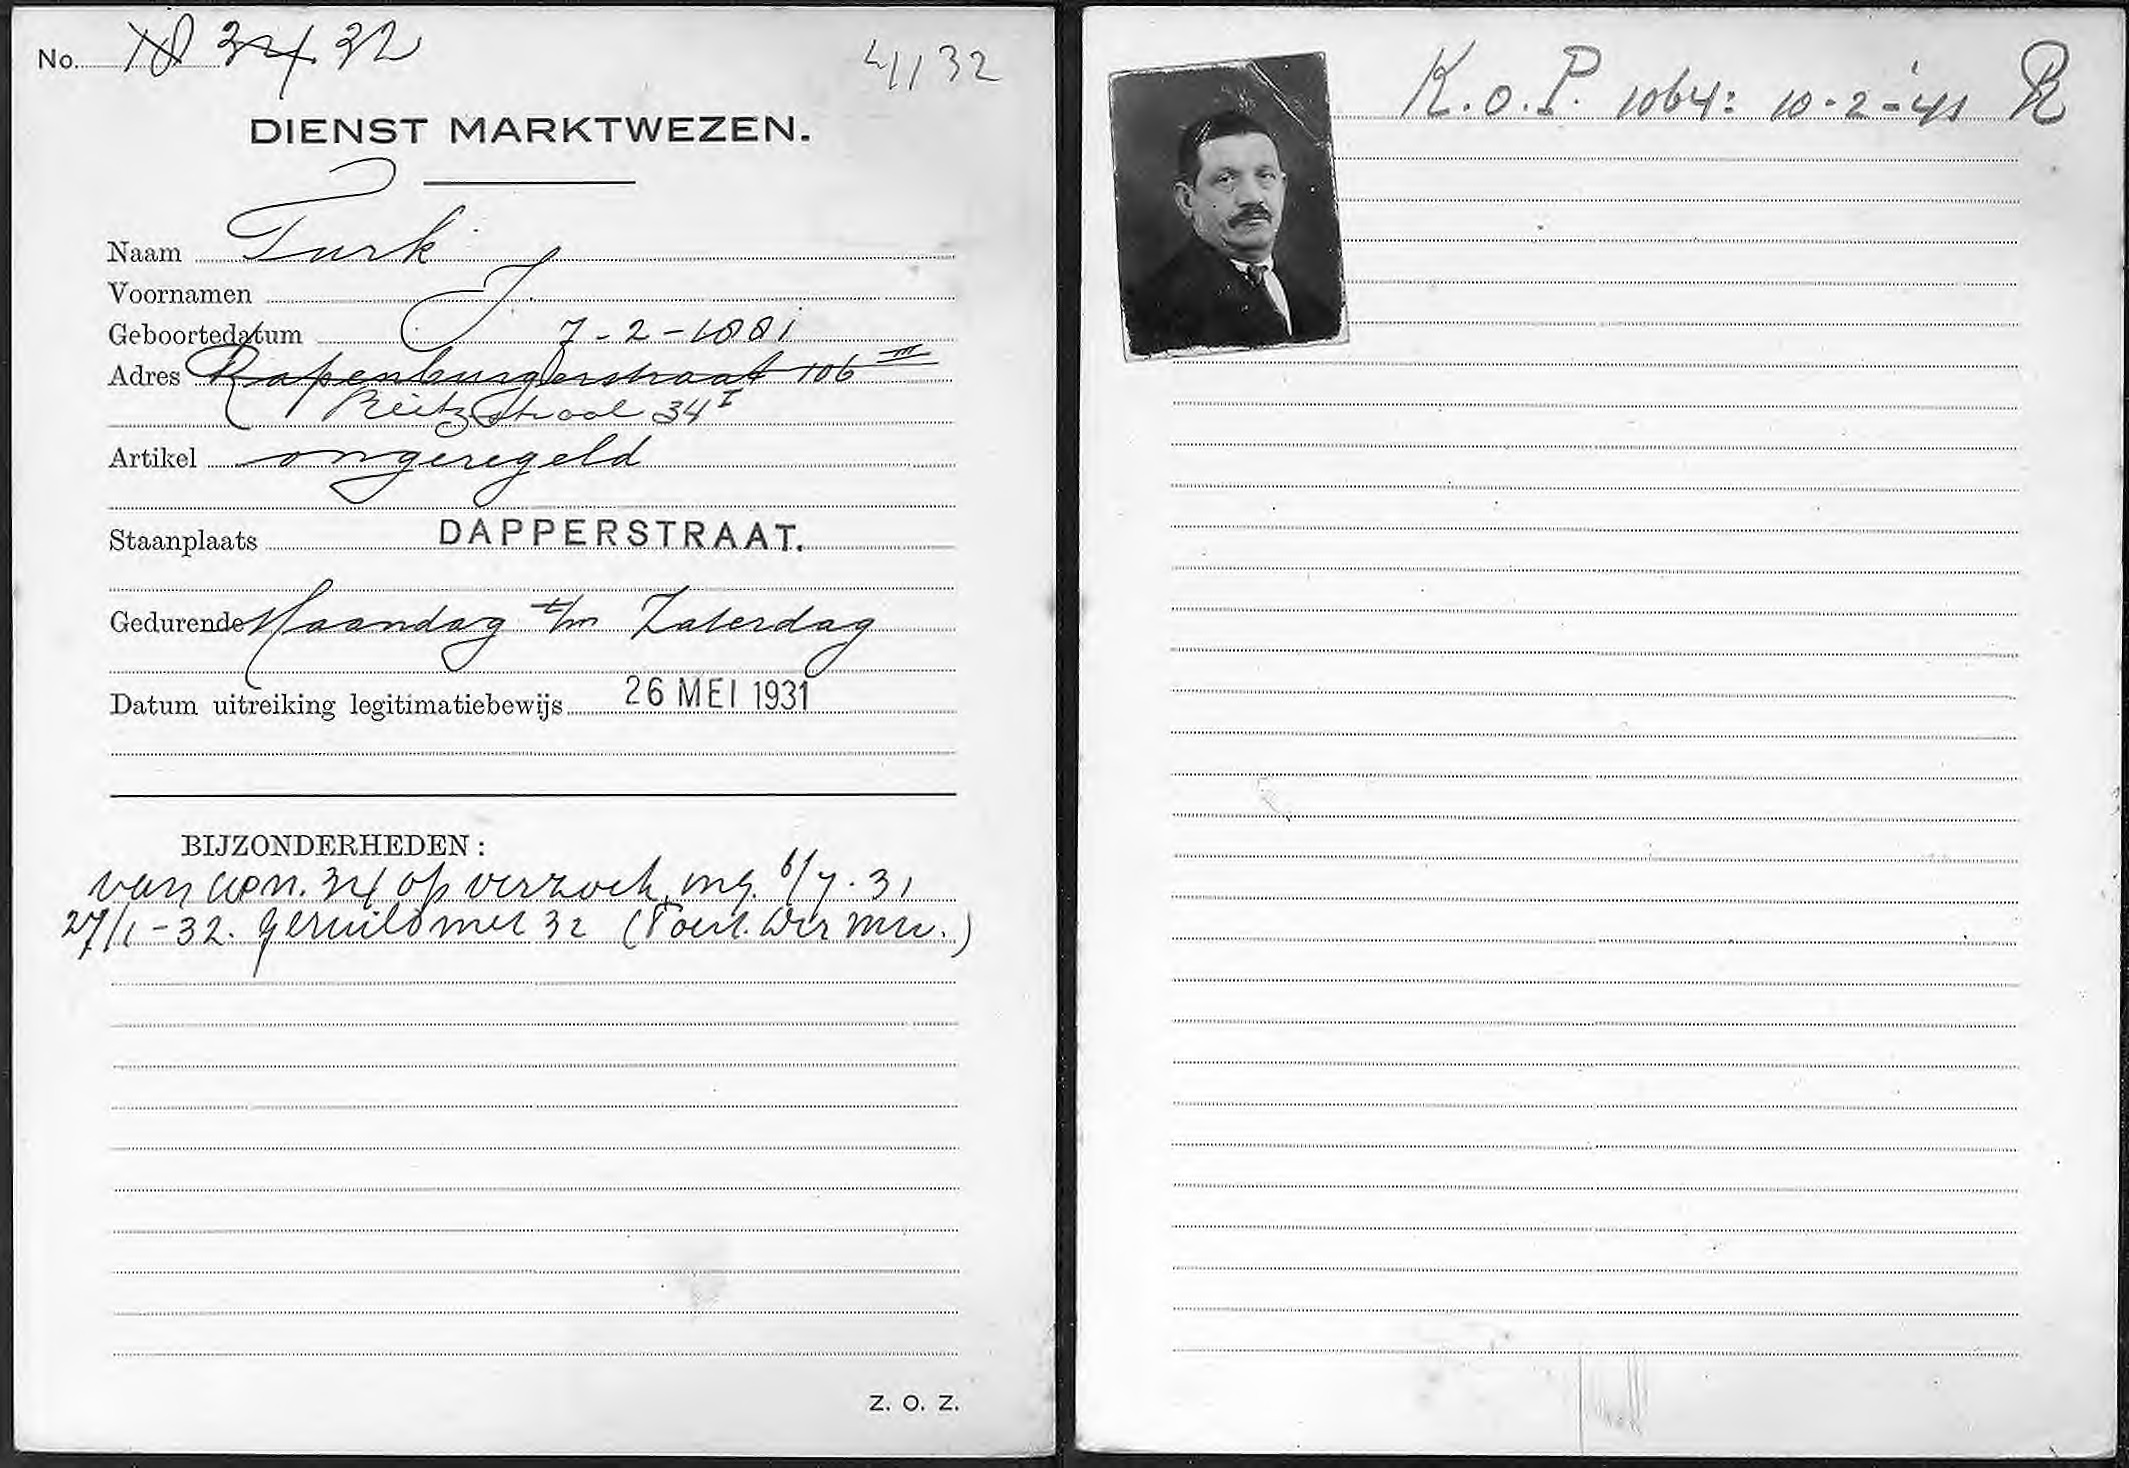 No. 18 34 32
4/132
DIENST MARKTWEZEN.
Naam Turk
Voornamen J.
Geboortedatum 7-2-1881
Adres Rapenburgerstraat 106 III
Reitzstraat 34 I
Artikel ongeregeld
Staanplaats DAPPERSTRAAT.
Gedurende Maandag t/m Zaterdag
Datum uitreiking legitimatiebewijs 26 MEI 1931
BIJZONDERHEDEN:
van 34 op verzoek, ing. 6/7.31
27/1-32. geruild met 32
Z. O. Z.
K.o.P. 1064: 10-2-'41 R